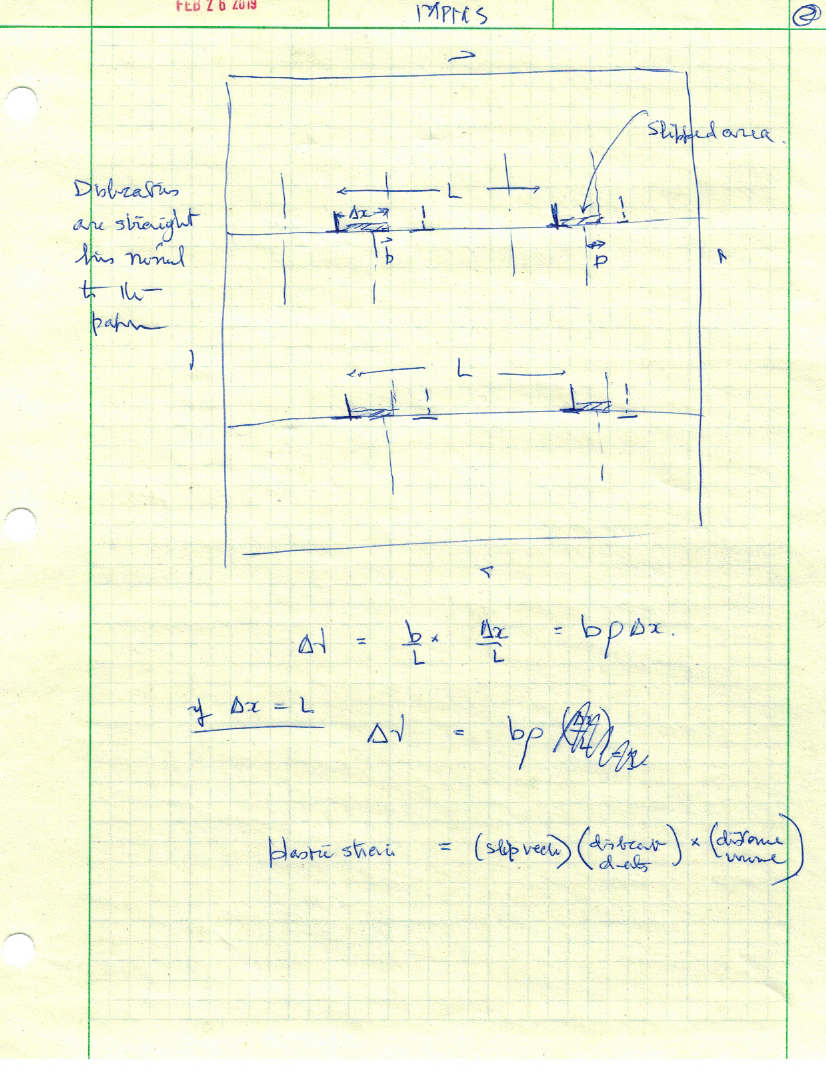 FEB 26 2019
②
→
Slipped area.
Dislocations
are straight
lines normal
to the
paper
L
Δx
b
b
L
Δγ = b/L × Δx/L = bρΔx.
if Δx = L
Δγ = bρ
plastic strain = (slip vector) (dislocation density) × (distance moved)